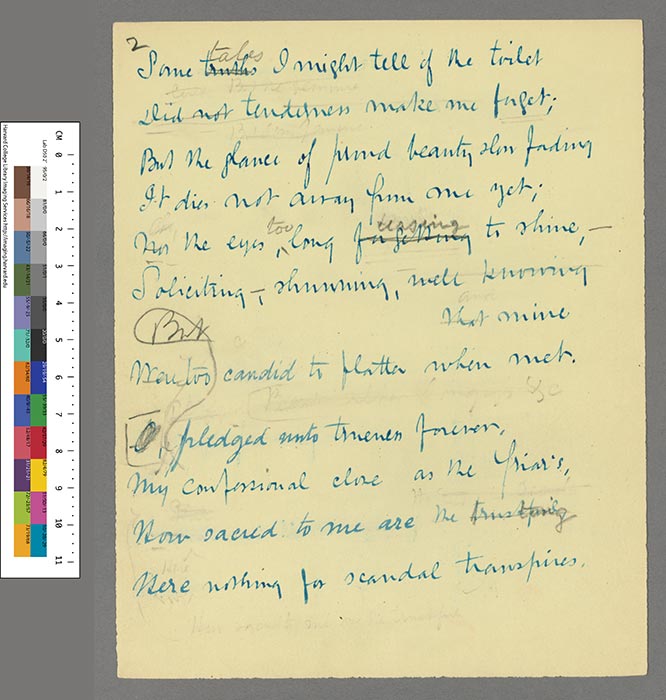 2
Some truths tales I might tell of the toilet
Did not tenderness make me forget;
But the glance of proud beauty slow fading
It dies not away from me yet;
Nor the eyes, too long forgetting ceasing to shine,—
Soliciting—, shunning, well knowing
that mine
But
Were too candid to flatter when met.
O, pledged unto trueness forever,
My confessional close as the Friar's,
How sacred to me are the trusting
Here nothing for scandal transpires.
CM 0 1 2 3 4 5 6 7 8 9 10 11
Harvard College Library Imaging Services http://imaging.harvard.edu